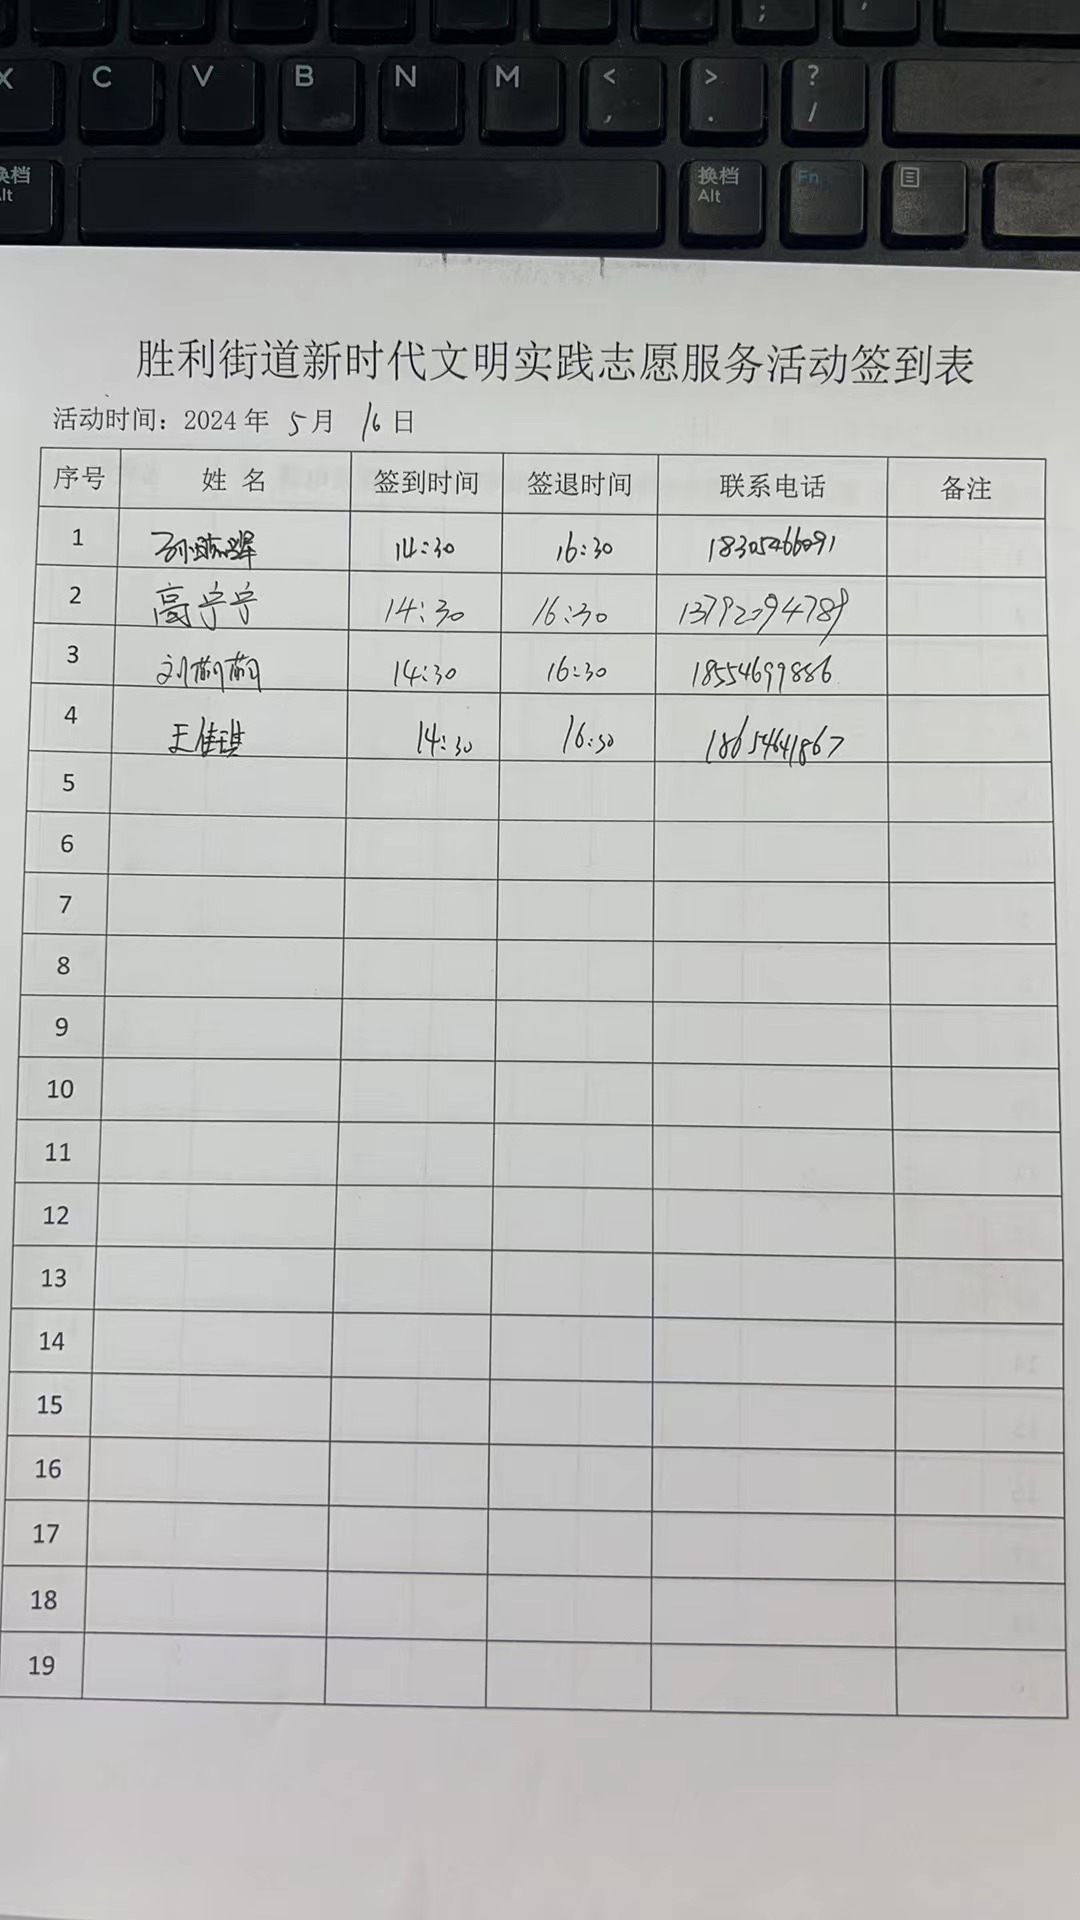 ; ,
X C V B N M < , > . ? /
换档 Alt 换档 Alt Fn
胜利街道新时代文明实践志愿服务活动签到表
活动时间：2024年 5月 16日
序号 姓 名 签到时间 签退时间 联系电话 备注
1 14:30 16:30 18305466091
2 高宁宁 14:30 16:30 13792094789
3 刘 14:30 16:30 18554699886
4 王佳琪 14:30 16:30 18654641867
5
6
7
8
9
10
11
12
13
14
15
16
17
18
19